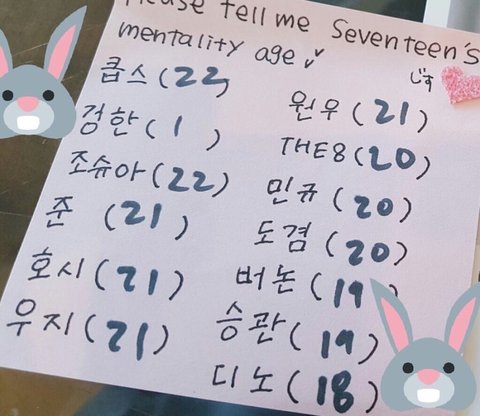 Please tell me Seventeen's
mentality age
じす
쿱스 (22)
정한 ( 1 )
조슈아 (22)
준 (21)
호시 (21)
우지 (21)
원우 (21)
THE8 (20)
민규 (20)
도겸 (20)
버논 (19)
승관 (19)
디노 (18)